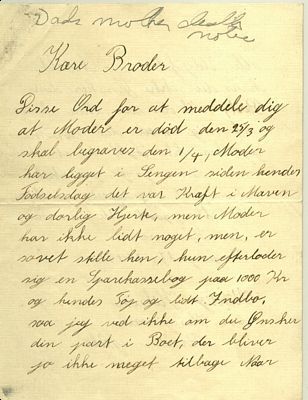 Dads mother death
note
Kære Broder
Disse Ord for at meddele dig
at Moder er død den 25/3 og
skal begraves den 1/4, Moder
har ligget i Sengen siden hendes
Fødselsdag det var Kræft i Maven
og dorlig Hjerte, men Moder
har ikke lidt noget, men, er
sovet stille hen, hun efterloder
sig en Sparekassebog paa 1000 Kr
og hendes Tøj og lidt Indbo,
saa jeg ved ikke om du Ønsker
din part i Boet, der bliver
jo ikke meget tilbage Naar